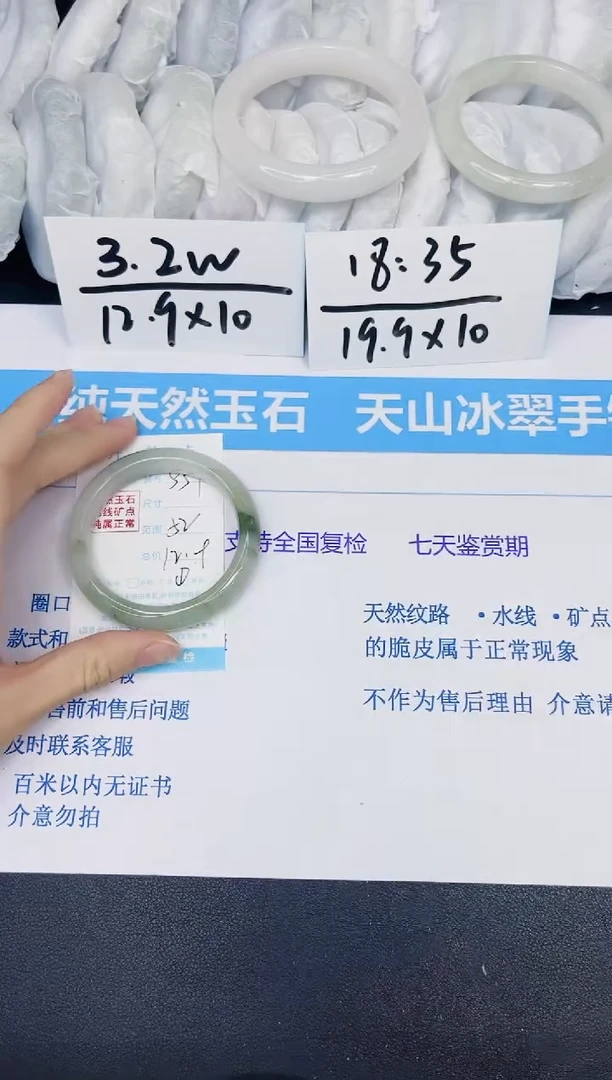 3.2W
12.9×10
18:35
19.9×10
纯天然玉石 天山冰翠手
尺寸
范围 52
总价 12.9
玉石
线矿点
纯属正常
支持全国复检 七天鉴赏期
圈口
款式和
售前和售后问题
及时联系客服
百米以内无证书
介意勿拍
天然纹路 ·水线 ·矿点
的脆皮属于正常现象
不作为售后理由 介意请